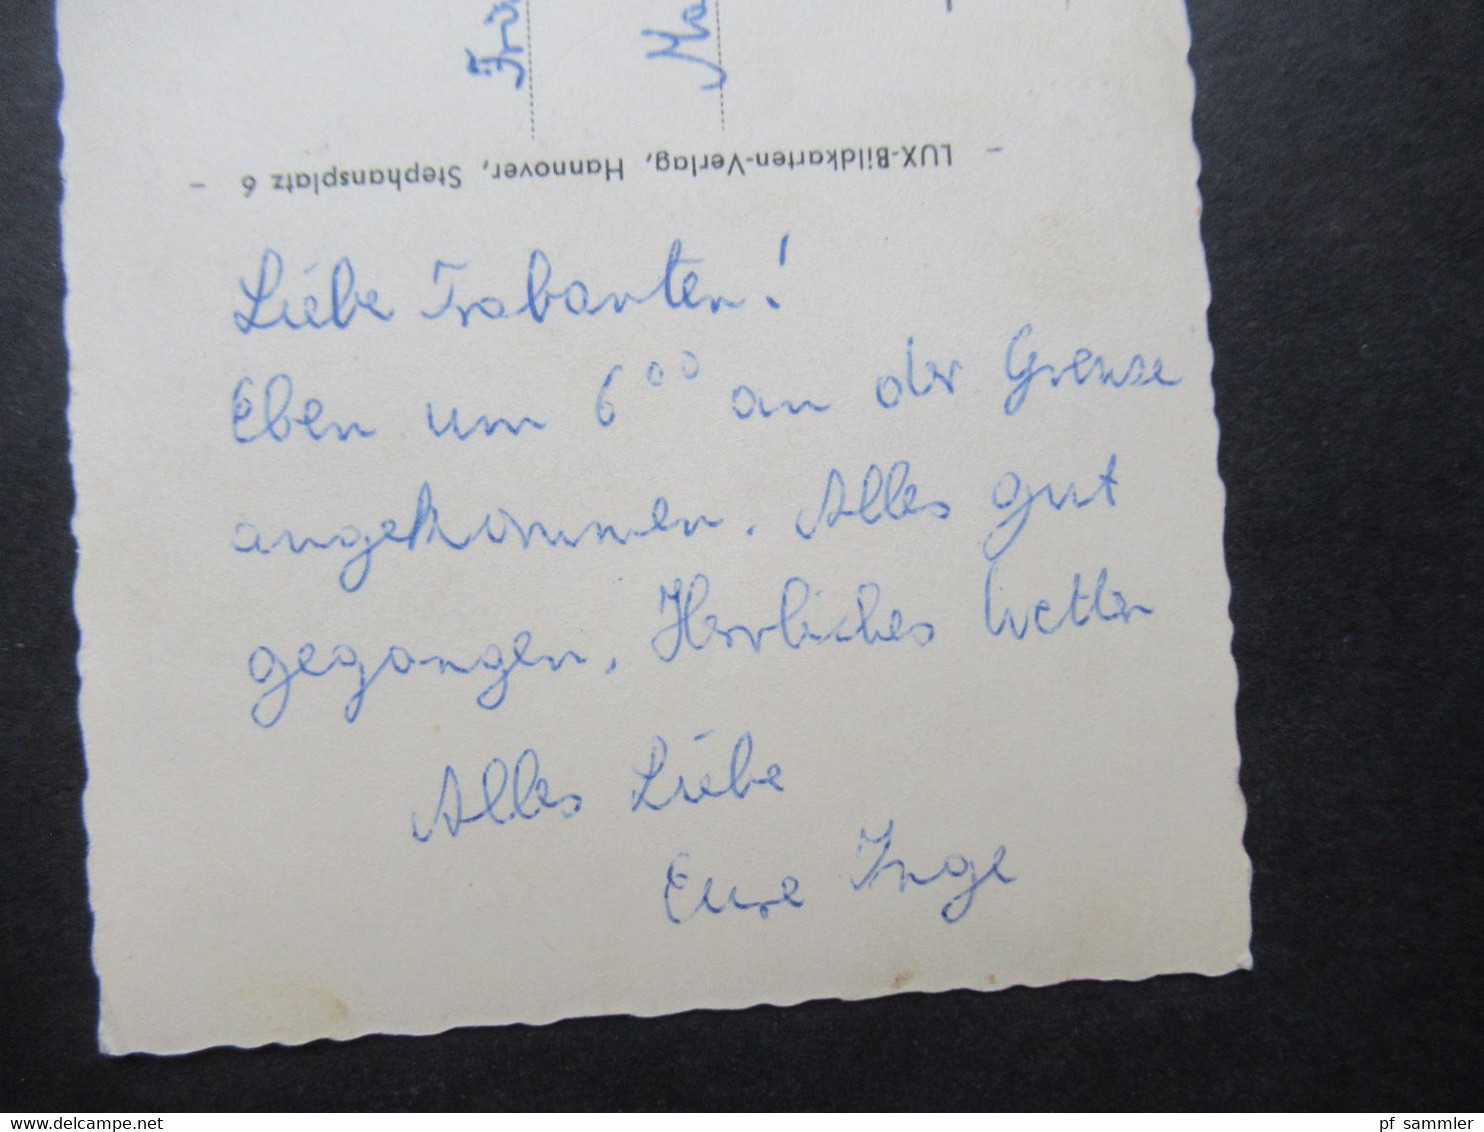 – LUX-Bildkarten-Verlag, Hannover, Stephansplatz 6 –
Liebe Trabanten!
Eben um 6⁰⁰ an der Grenze
angekommen. Alles gut
gegangen. Herrliches Wetter
Alles Liebe
Eure Inge
pf_sammler